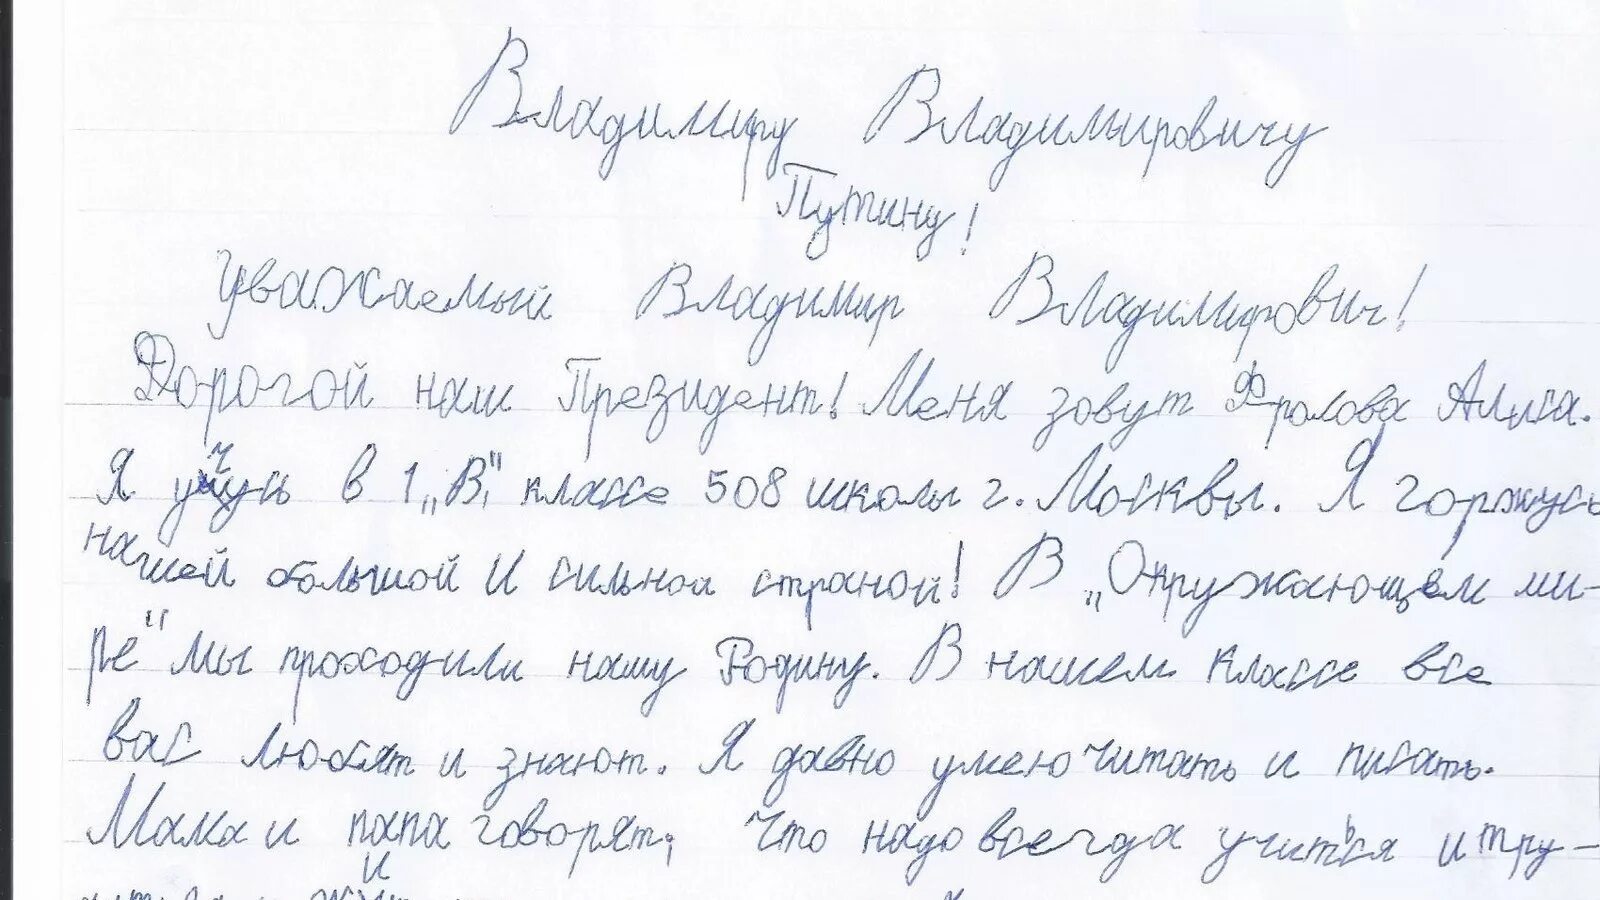 Владимиру Владимировичу
Путину!
Уважаемый Владимир Владимирович!
Дорогой наш Президент! Меня зовут Фролова Алиса.
Я учусь в 1 „В“ классе 508 школы г. Москвы. Я горжусь
нашей большой и сильной страной! В „Окружающем ми-
ре“ мы проходили нашу Родину. В нашем классе все
вас любят и знают. Я давно умею читать и писать.
Мама и папа говорят, что надо всегда учиться и тру-